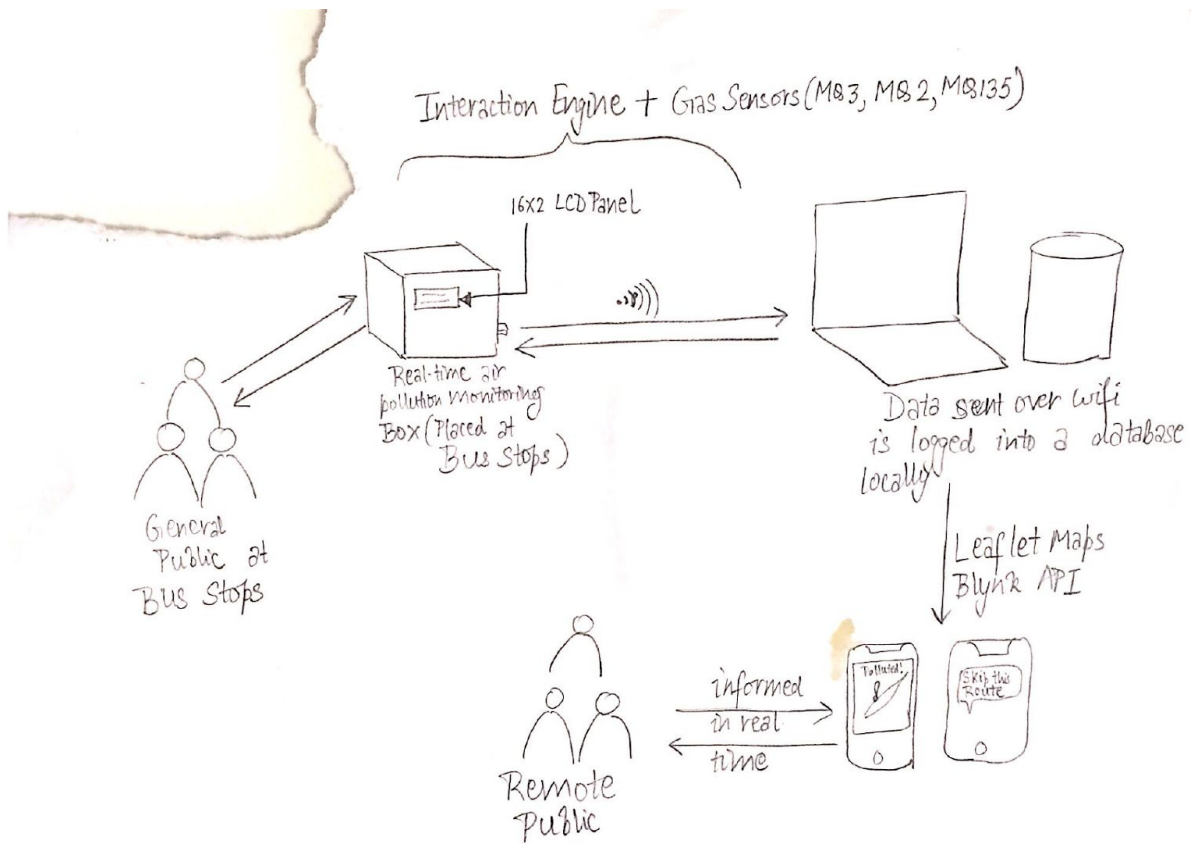 Interaction Engine + Gas Sensors (MQ3, MQ2, MQ135)
16x2 LCD Panel
Real-time air
pollution monitoring
Box (Placed at
Bus Stops)
General
Public at
Bus Stops
Data sent over wifi
is logged into a database
locally
Leaflet Maps
Blynk API
Polluted!
Skip this
Route
informed
in real
time
Remote
Public